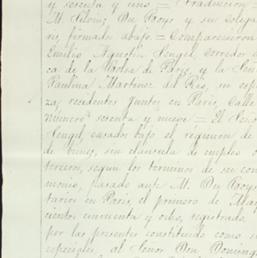 y sesenta y uno = Traduccion =
M. Du Boys y su colega
firmado abajo = Comparecieron
Emilio Agustin Sengel, corredor
ca de la Bolsa de Paris, y la Señ
Paulina Martinez del Rio, su espo
za, residentes juntos en Paris, Calle
numero sesenta y nueve = El Seño
Sengel, casados bajo el regimen de
de bienes, sin clausula de empleo
tercero, segun los terminos de su con
monio, pasado ante M. Du Boys
tarios en Paris, el primero de
cientos cincuenta y ocho, registrado
por las presentes constituido como
especiales, al Señor Don Domingo